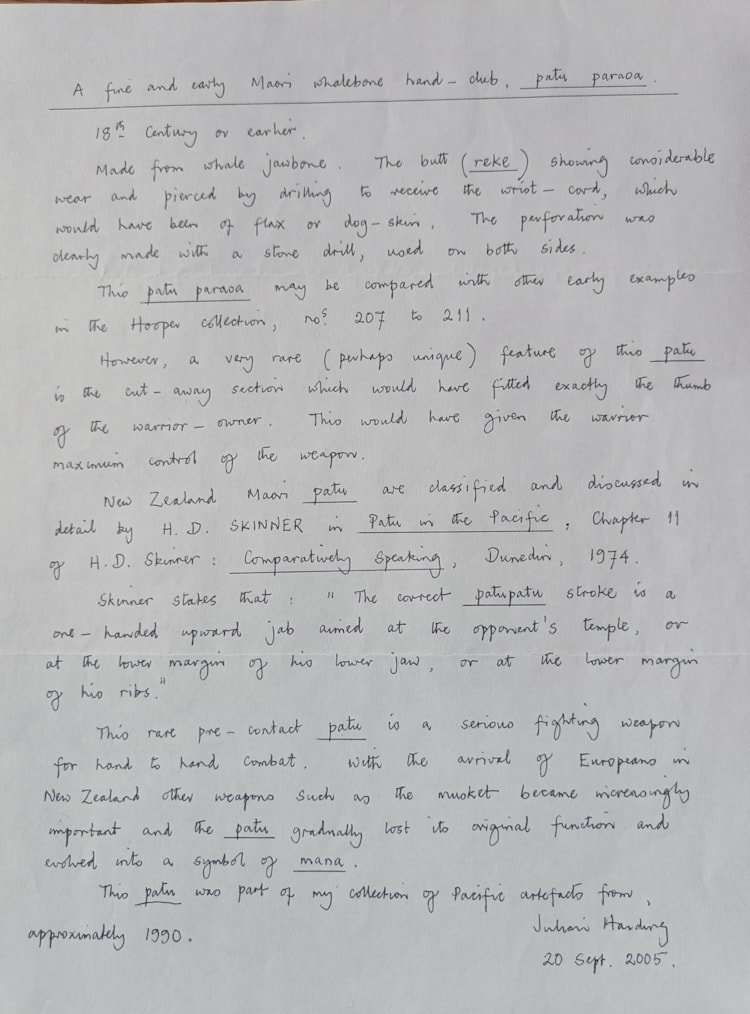 A fine and early Maori whalebone hand-club, patu paraoa.
18th Century or earlier.
Made from whale jawbone. The butt (reke) showing considerable
wear and pierced by drilling to receive the wrist-cord, which
would have been of flax or dog-skin. The perforation was
clearly made with a stone drill, used on both sides.
This patu paraoa may be compared with other early examples
in the Hooper collection, nos. 207 to 211.
However, a very rare (perhaps unique) feature of this patu
is the cut-away section which would have fitted exactly the thumb
of the warrior-owner. This would have given the warrior
maximum control of the weapon.
New Zealand Maori patu are classified and discussed in
detail by H. D. SKINNER in Patu in the Pacific, Chapter 11
of H. D. Skinner: Comparatively Speaking, Dunedin, 1974.
Skinner states that: "The correct patupatu stroke is a
one-handed upward jab aimed at the opponent's temple, or
at the lower margin of his lower jaw, or at the lower margin
of his ribs."
This rare pre-contact patu is a serious fighting weapon
for hand to hand combat. With the arrival of Europeans in
New Zealand other weapons such as the musket became increasingly
important and the patu gradually lost its original function and
evolved into a symbol of mana.
This patu was part of my collection of Pacific artefacts from,
approximately 1990.
Julian Harding
20 Sept. 2005.